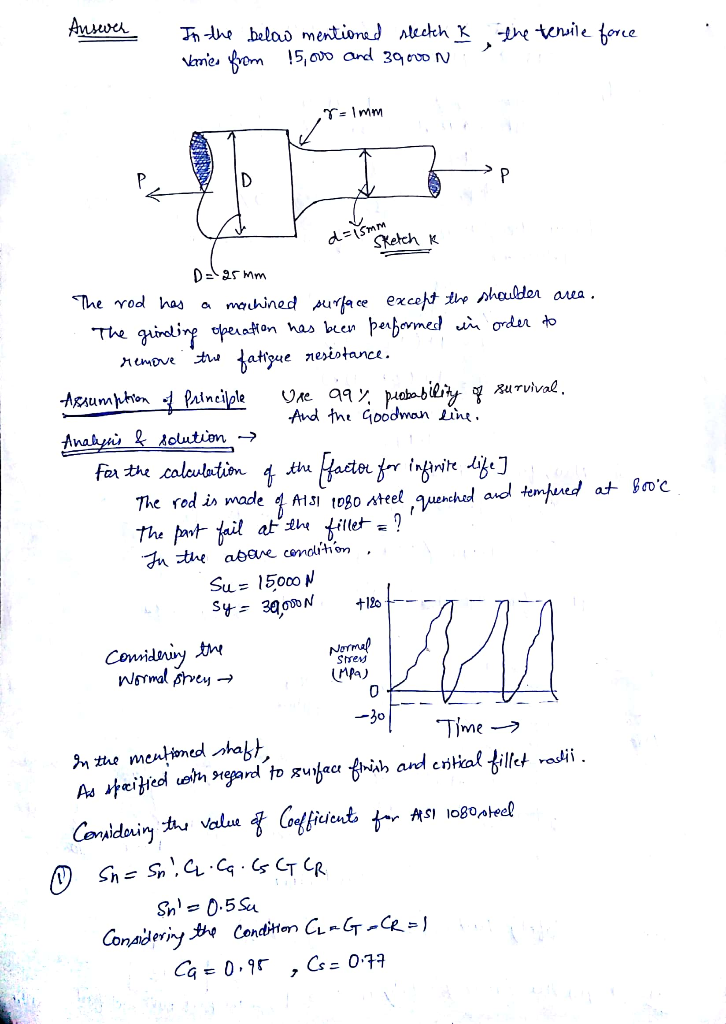 Answer In the below mentioned sketch K, the tensile force
varies from 15,000 and 39,000 N
r = 1mm
P
D
P
d=15mm
Sketch K
D=25 mm
The rod has a machined surface except the shoulder area.
The grinding operation has been performed in order to
remove the fatigue resistance.
Assumption of Principle Use 99 % probability of survival.
And the Goodman line.
Analysis & solution →
For the calculation of the [factor for infinite life]
The rod is made of AISI 1080 steel, quenched and tempered at 800°C
The part fail at the fillet = ?
In the above condition,
Su = 15000 N
Sy = 39,000 N
+120
Considering the
Normal stress →
Normal
Stress
(MPa)
0
-30
Time →
In the mentioned shaft,
As specified with regard to surface finish and critical fillet radii.
Considering the value of Coefficients for AISI 1080 steel
① Sn = Sn'. CL . CG . CS CT CR
Sn' = 0.5 Su
Considering the Condition CL = CT = CR = 1
CG = 0.95 , Cs = 0.77